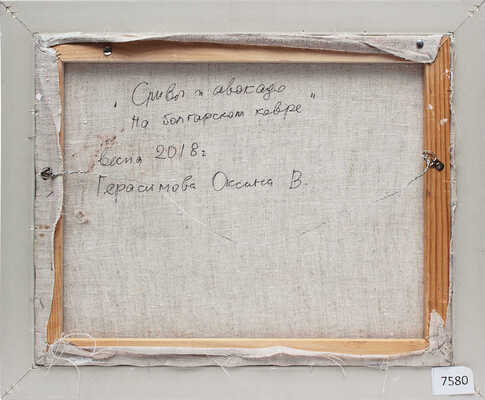 „Сливы и авокадо
на болгарском ковре"
весна 2018г
Герасимова Оксана В.
7580